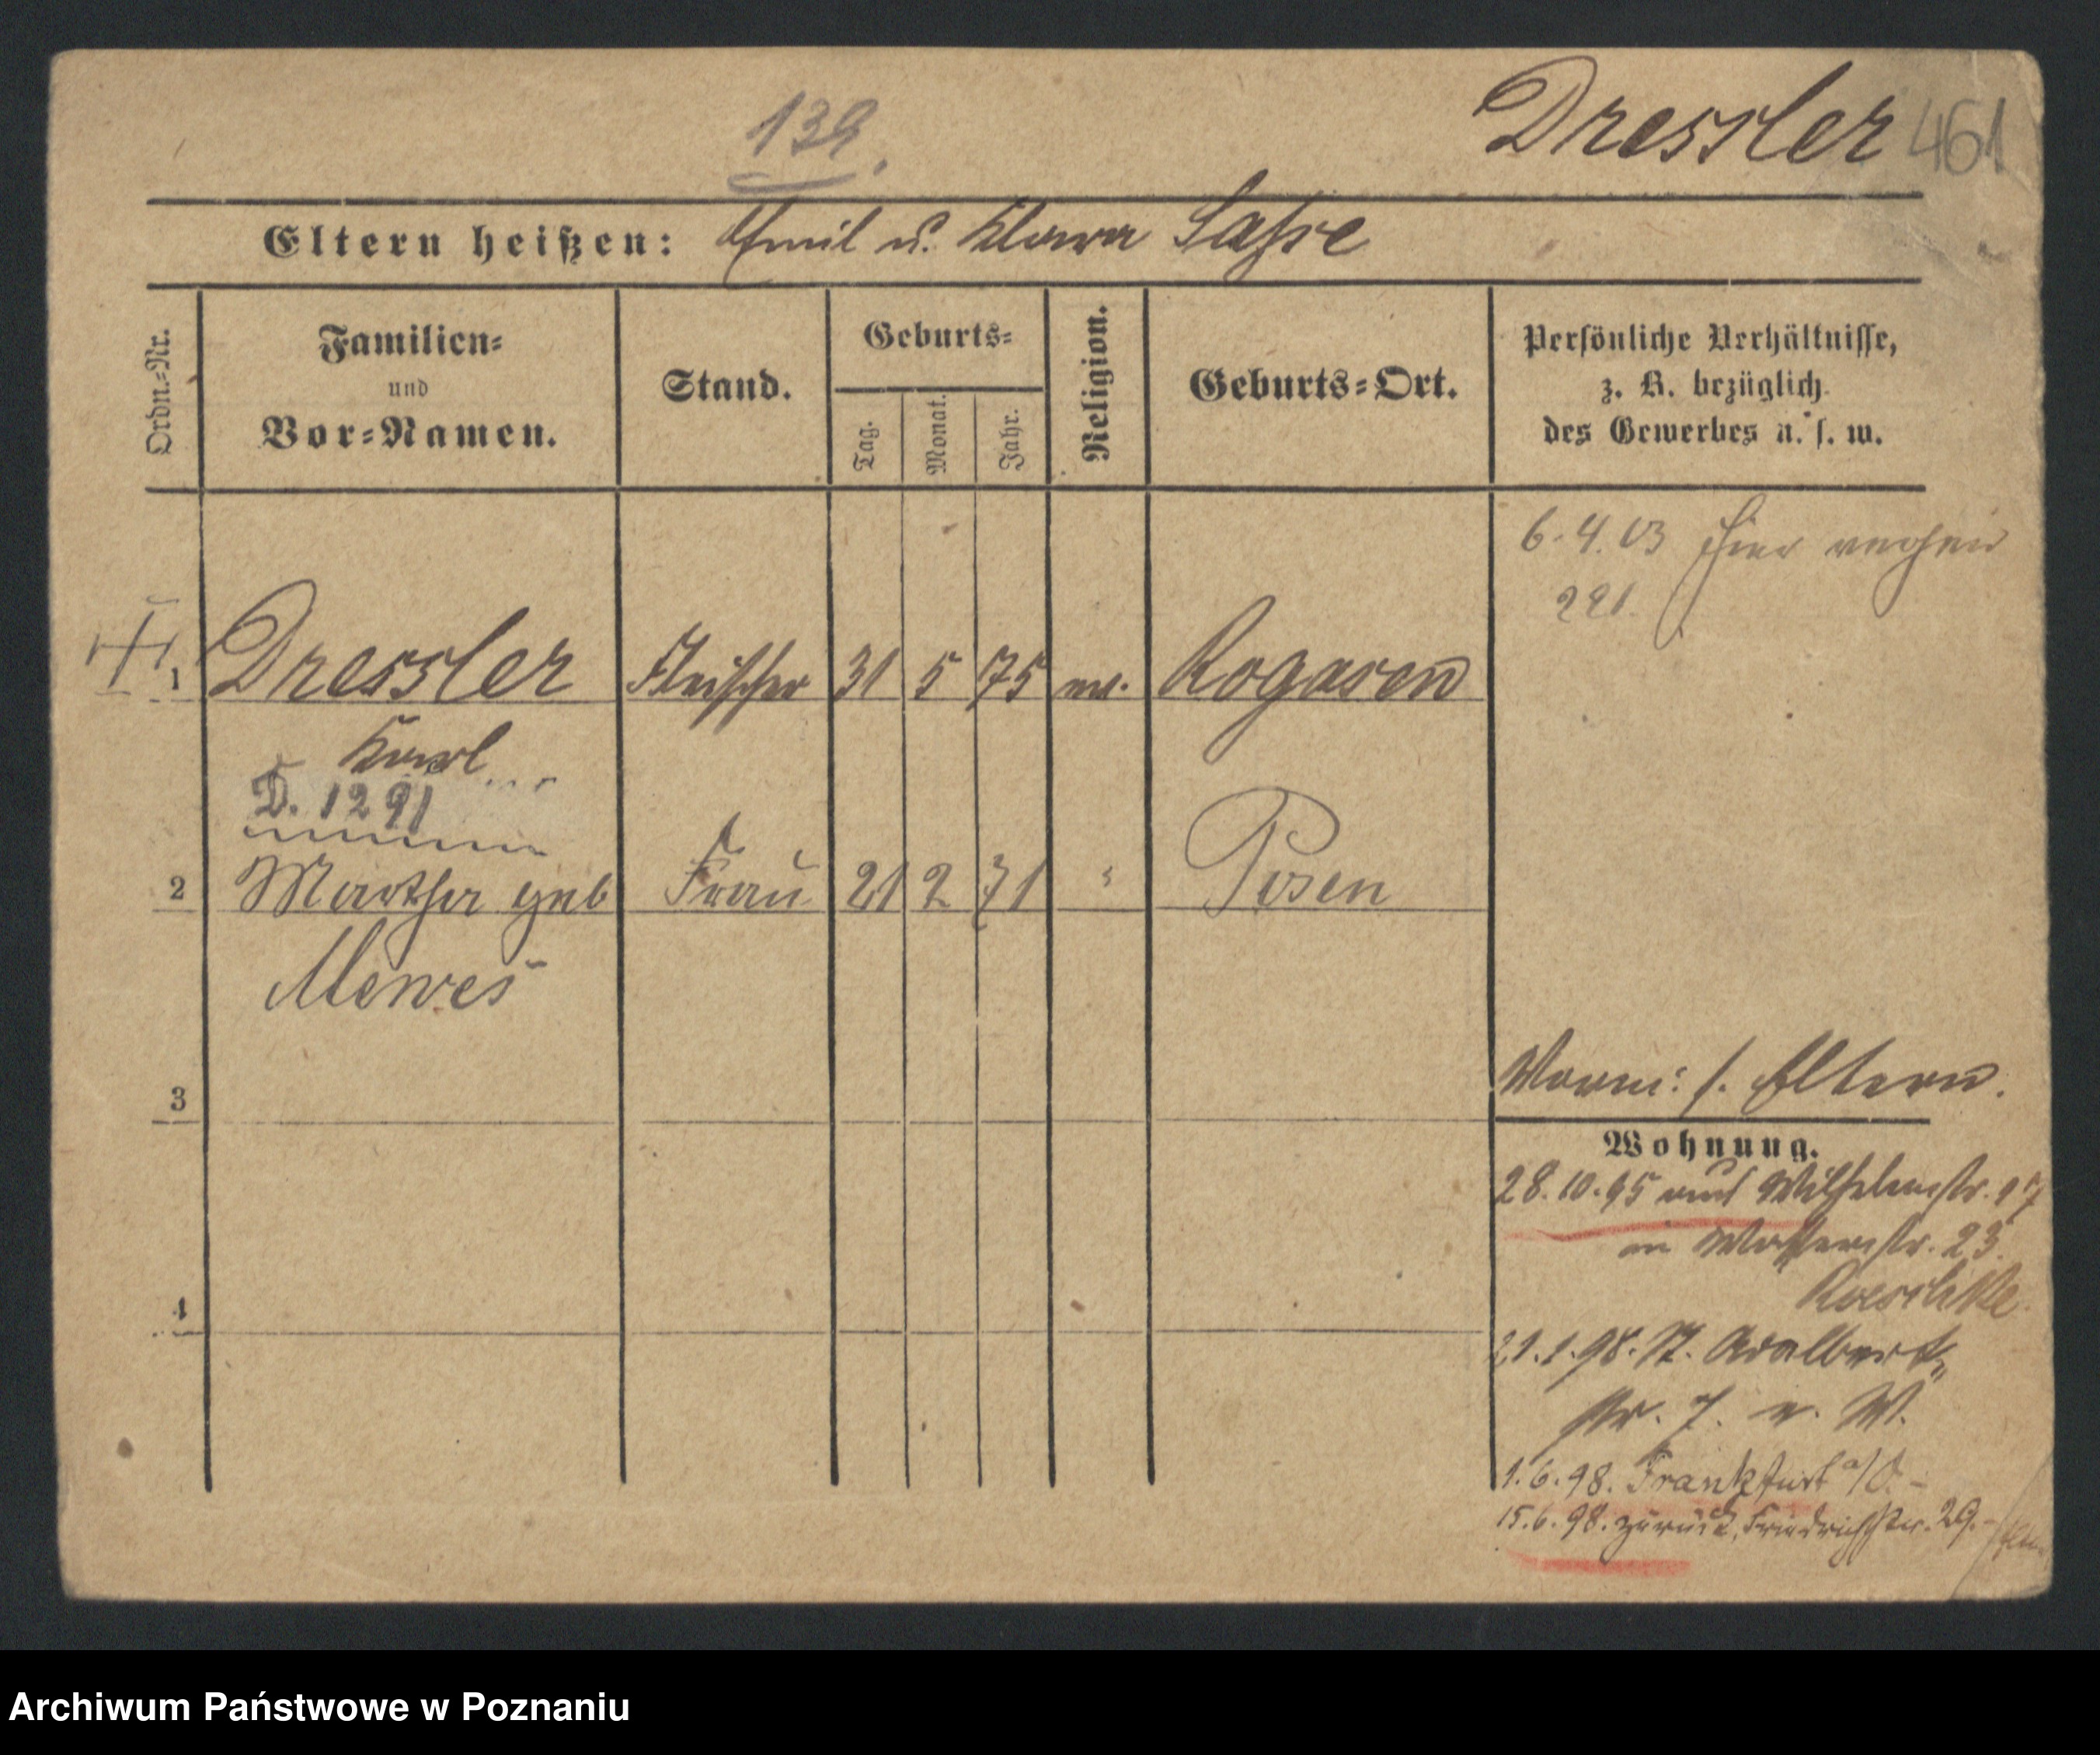 139.
Dressler 461
Eltern heißen: Emil u. Klara Sasse
Ordn.-Nr.
Familien-
und
Vor-Namen.
Stand.
Geburts-
Tag.
Monat.
Jahr.
Religion.
Geburts-Ort.
Persönliche Verhältnisse,
z. B. bezüglich
des Gewerbes u. s. w.
6.4.03 hier
291.
1 Dressler Fleischer 31 5 75 ev. Rogasen
Karl
D. 1291
2 Martha geb Frau 21 2 71 " Posen
Mewes
3
4
Vorm: s. Eltern.
Wohnung.
28.10.95 aus Wilhelmstr. 17
in Wasserstr. 23.
Roeschke
21.1.98. St. Adalbert-
str. 7. v. W.
1.6.98. Frankfurt a/O. -
15.6.98. zurück, Friedrichstr. 29. -
Archiwum Państwowe w Poznaniu